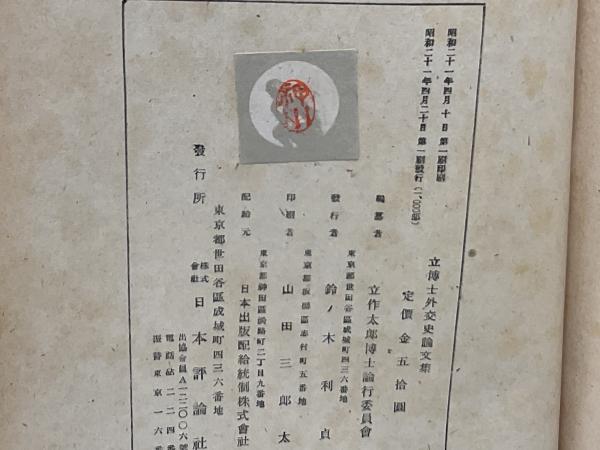 昭和二十一年四月十日 第一刷印刷
昭和二十一年四月二十日 第一刷發行(二,〇〇〇部)
立博士外交史論文集
定價金五拾圓
編纂者
立作太郎博士論行委員會
東京都世田谷區成城町四三六番地
發行者
鈴ノ木利貞
東京都板橋區志村町五番地
印刷者
山田三郎太
東京都神田區淡路町二丁目九番地
配給元
日本出版配給統制株式會社
東京都世田谷區成城町四三六番地
發行所
株式會社
日本評論社
出協會員A一二二〇〇六號
電話砧二二四番
振替東京一六番